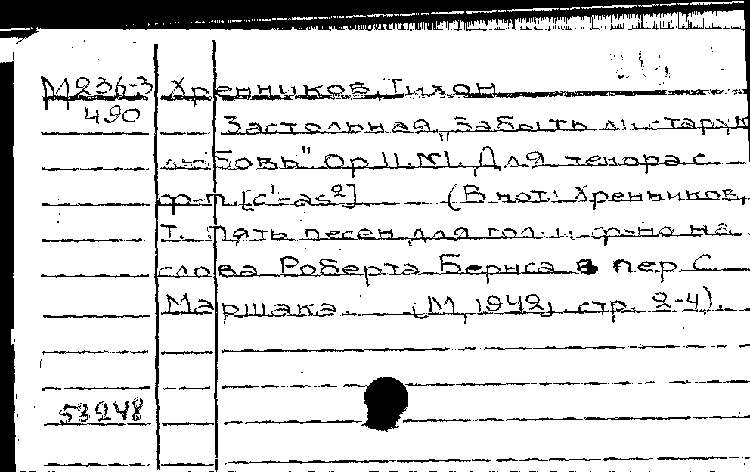 М236-3 Хренников, Тихон
490
Застольная „Забыть ли старую
любовь" Op.11.№1. Для тенора с
ф-п. [c¹-as²] (В нот: Хренников,
Т. Пять песен для гол. и ф-но на
слова Роберта Бернса в пер С
Маршака. (М, 1942, стр. 2-4).
53248